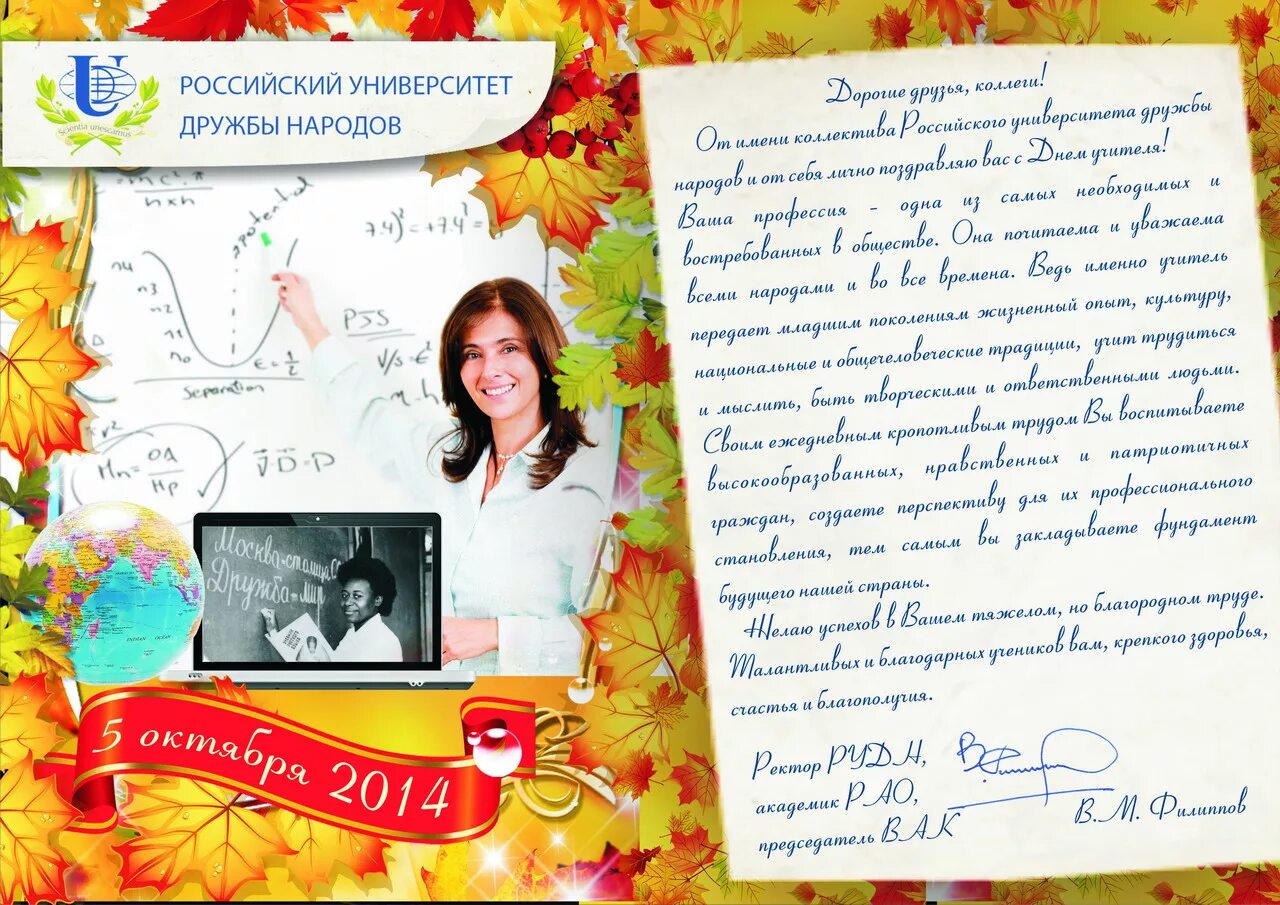 РОССИЙСКИЙ УНИВЕРСИТЕТ
ДРУЖБЫ НАРОДОВ
Scientia unescamus
n4
n3
n2
n1
n0
potential
ε = 1/2
Separation
7.4)² = +7.4³ =
PJS
V/s = ε²
V·D = P
INDIAN OCEAN
Москва - столица СС
Дружба - Мир
5 октября 2014
Дорогие друзья, коллеги!
От имени коллектива Российского университета дружбы
народов и от себя лично поздравляю вас с Днем учителя!
Ваша профессия - одна из самых необходимых и
востребованных в обществе. Она почитаема и уважаема
всеми народами и во все времена. Ведь именно учитель
передает младшим поколениям жизненный опыт, культуру,
национальные и общечеловеческие традиции, учит трудиться
и мыслить, быть творческими и ответственными людьми.
Своим ежедневным кропотливым трудом Вы воспитываете
высокообразованных, нравственных и патриотичных
граждан, создаете перспективу для их профессионального
становления, тем самым вы закладываете фундамент
будущего нашей страны.
Желаю успехов в Вашем тяжелом, но благородном труде.
Талантливых и благодарных учеников вам, крепкого здоровья,
счастья и благополучия.
Ректор РУДН,
академик РАО,
председатель ВАК
В.М. Филиппов